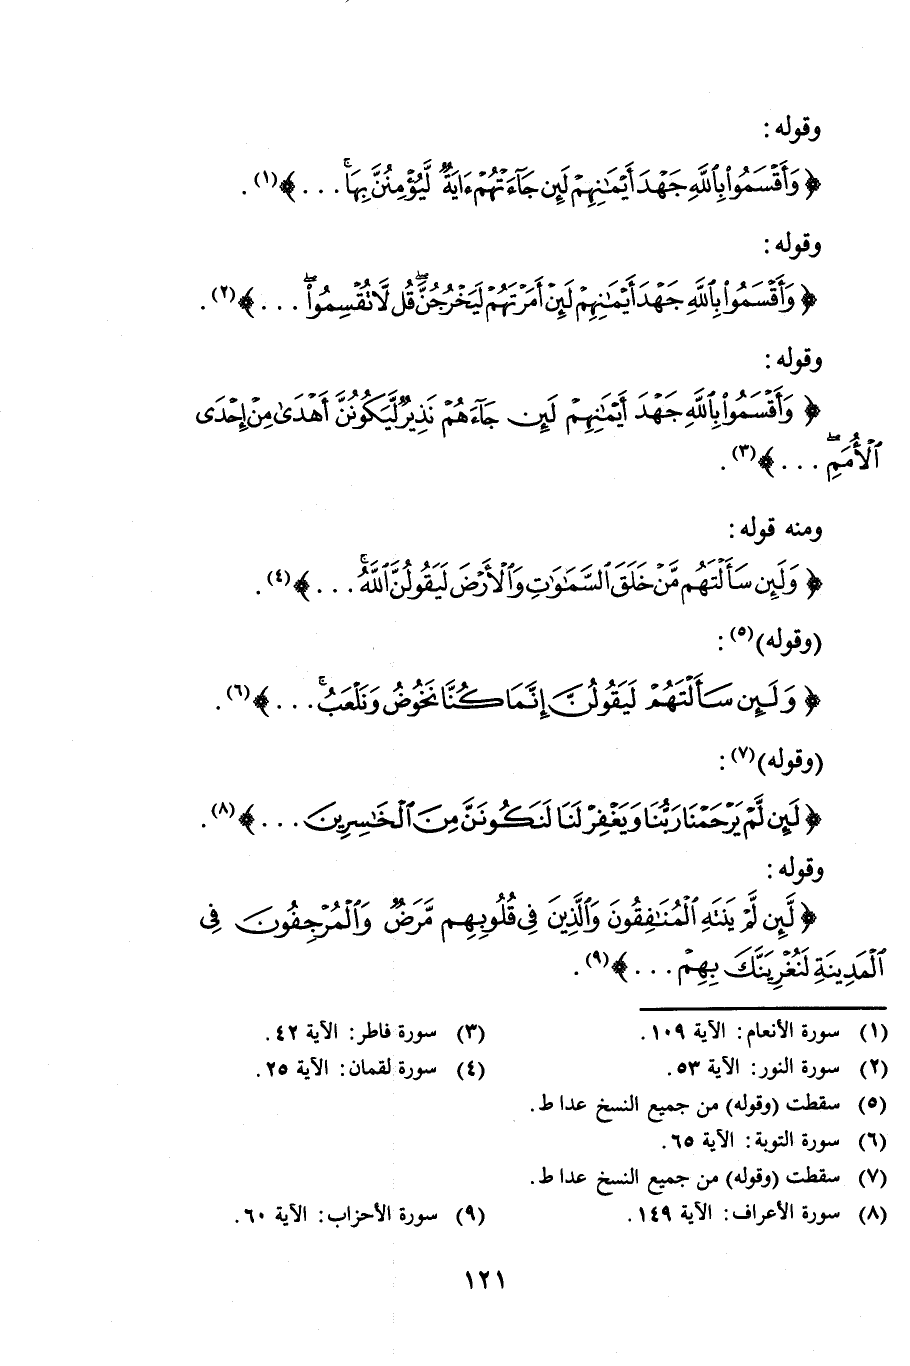 وقوله :
﴿ وَأَقْسَمُوا۟ بِٱللَّهِ جَهْدَ أَيْمَٰنِهِمْ لَئِن جَآءَتْهُمْ ءَايَةٌ لَّيُؤْمِنُنَّ بِهَا ۚ . . . ﴾(١) .
وقوله :
﴿ وَأَقْسَمُوا۟ بِٱللَّهِ جَهْدَ أَيْمَٰنِهِمْ لَئِنْ أَمَرْتَهُمْ لَيَخْرُجُنَّ ۖ قُل لَّا تُقْسِمُوا۟ ۖ . . . ﴾(٢) .
وقوله :
﴿ وَأَقْسَمُوا۟ بِٱللَّهِ جَهْدَ أَيْمَٰنِهِمْ لَئِن جَآءَهُمْ نَذِيرٌ لَّيَكُونُنَّ أَهْدَىٰ مِنْ إِحْدَى
ٱلْأُمَمِ ۖ . . . ﴾(٣) .
ومنه قوله :
﴿ وَلَئِن سَأَلْتَهُم مَّنْ خَلَقَ ٱلسَّمَٰوَٰتِ وَٱلْأَرْضَ لَيَقُولُنَّ ٱللَّهُ ۚ . . . ﴾(٤) .
(وقوله)(٥) :
﴿ وَلَئِن سَأَلْتَهُمْ لَيَقُولُنَّ إِنَّمَا كُنَّا نَخُوضُ وَنَلْعَبُ ۚ . . . ﴾(٦) .
(وقوله)(٧) :
﴿ لَئِن لَّمْ يَرْحَمْنَا رَبُّنَا وَيَغْفِرْ لَنَا لَنَكُونَنَّ مِنَ ٱلْخَٰسِرِينَ . . . ﴾(٨) .
وقوله :
﴿ لَّئِن لَّمْ يَنتَهِ ٱلْمُنَٰفِقُونَ وَٱلَّذِينَ فِى قُلُوبِهِم مَّرَضٌ وَٱلْمُرْجِفُونَ فِى
ٱلْمَدِينَةِ لَنُغْرِيَنَّكَ بِهِمْ . . . ﴾(٩) .
(١) سورة الأنعام : الآية ١٠٩ . (٣) سورة فاطر : الآية ٤٢ .
(٢) سورة النور : الآية ٥٣ . (٤) سورة لقمان : الآية ٢٥ .
(٥) سقطت (وقوله) من جميع النسخ عدا ط .
(٦) سورة التوبة : الآية ٦٥ .
(٧) سقطت (وقوله) من جميع النسخ عدا ط .
(٨) سورة الأعراف : الآية ١٤٩ . (٩) سورة الأحزاب : الآية ٦٠ .
١٢١